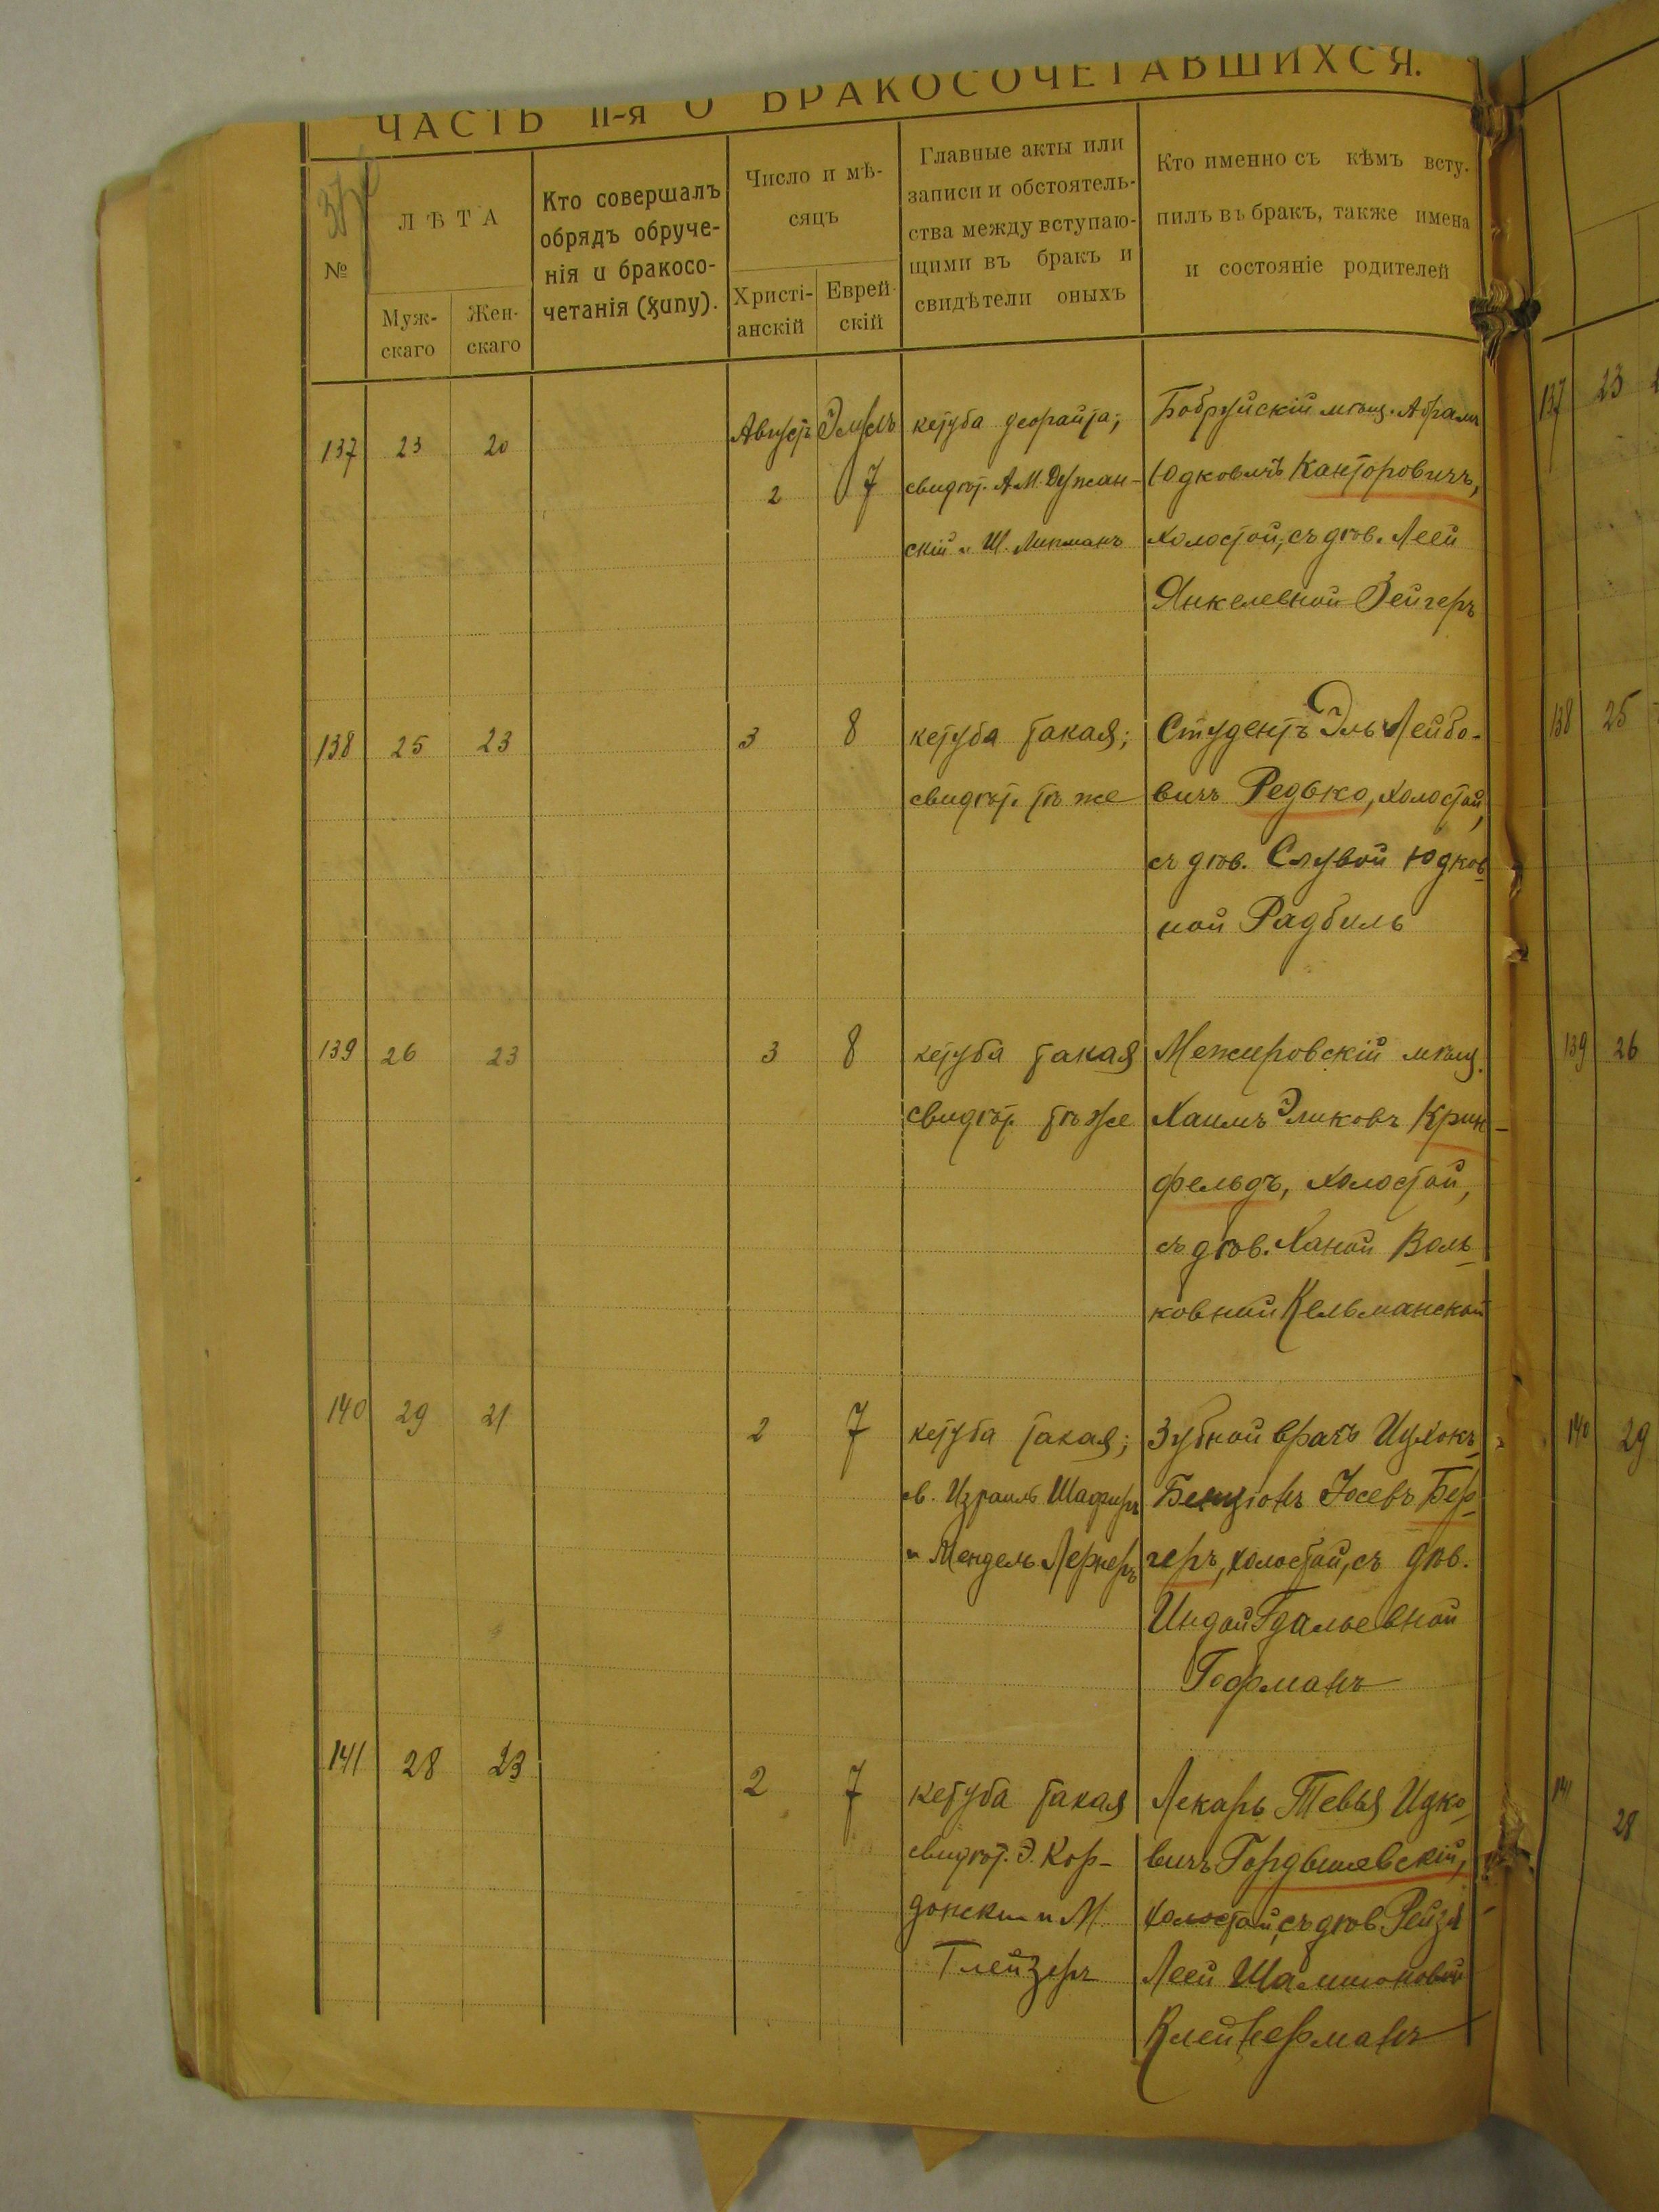 ЧАСТЬ II-я О БРАКОСОЧЕТАВШИХСЯ.
№
ЛѢТА
Муж-
скаго
Жен-
скаго
Кто совершалъ
обрядъ обруче-
нія и бракосо-
четанія (хупу).
Число и мѣ-
сяцъ
Христі-
анскій
Еврей-
скій
Главные акты или
записи и обстоятель-
ства между вступаю-
щими въ бракъ и
свидѣтели оныхъ
Кто именно съ кѣмъ всту-
пилъ въ бракъ, также имена
и состояніе родителей
137 23 20
Августъ Элулъ
2 7
кетуба деорайта;
свидѣт. А.М. Дужан-
скій и Ш. Липманъ
Бобруйскій мѣщ. Абрамъ
Юдковичъ Канторовичъ,
холостой, съ дѣв. Леей
Янкелевной Зейгеръ
138 25 23
3 8
кетуба такая;
свидѣт. тѣ же
Студентъ Эль Лейбо-
вичъ Редько, холостой,
съ дѣв. Слувой Юдков-
ной Радбиль
139 26 23
3 8
кетуба такая
свидѣт. тѣ же
Межировскій мѣщ.
Хаимъ Эликовъ Крин-
фельдъ, холостой,
съ дѣв. Ханой Воль-
ковной Кельманской
140 29 21
2 7
кетуба такая;
св. Израиль Шафиръ
и Мендель Лернеръ
Зубной врачъ Ицхокъ-
Бенціонъ Іосевъ Бер-
геръ, холостой, съ дѣв.
Индой Гдальевной
Гофманъ
141 28 23
2 7
кетуба такая
свидѣт. Э. Кор-
донский и М
Глейзеръ
Лекарь Тевья Ицко-
вичъ Гордышевскій,
холостой, съ дѣв. Рейзя-
Леей Шамшоновой
Клейнерманъ
137 23
138 25
139 26
140 29
141 28